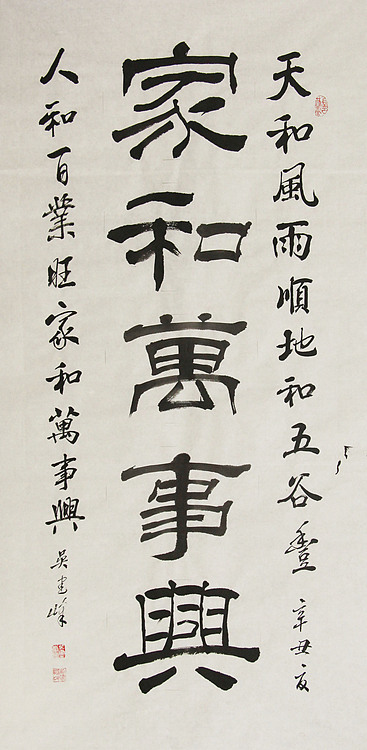 天和風雨順地和五谷豐 辛丑夏
家和萬事興
人和百業旺家和萬事興
吴建峰